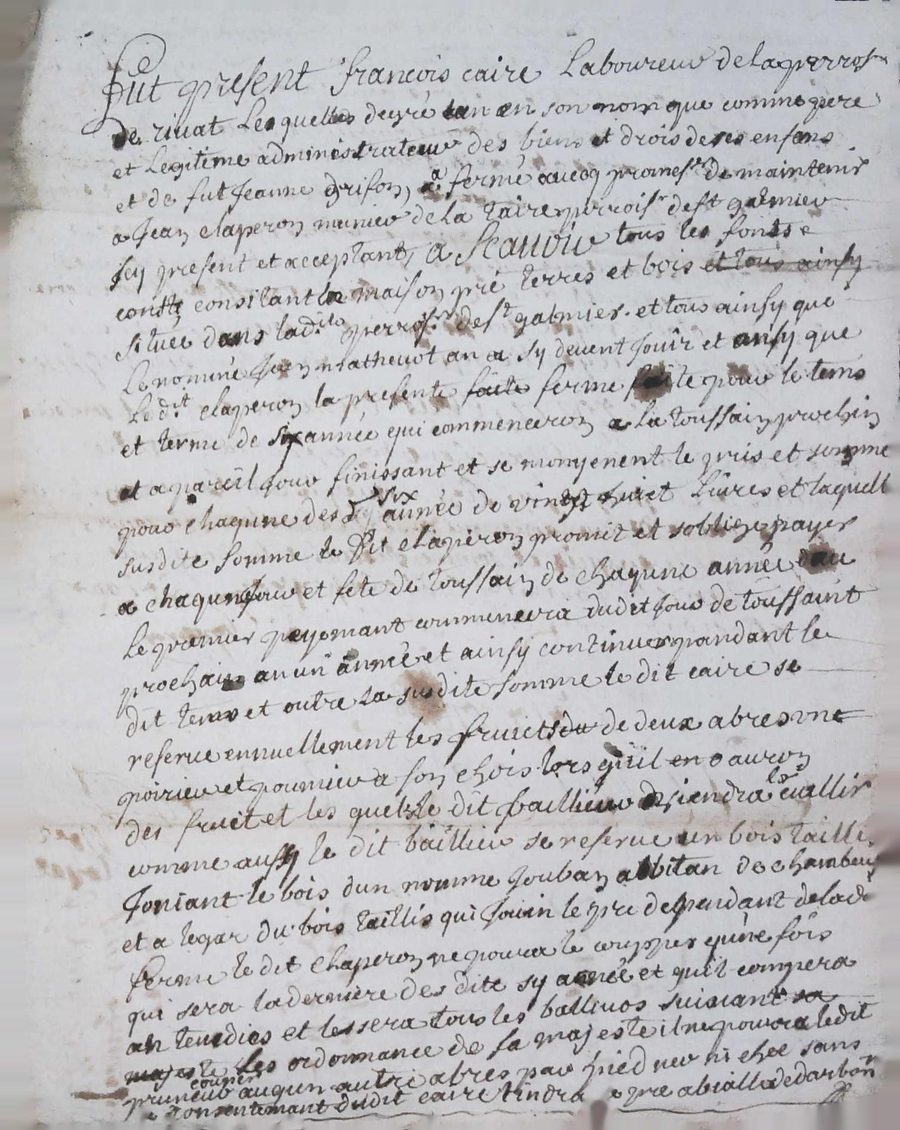 fut present francois caire Laboureur de la perroisse
de rivat Lesquelles degré tan en son nom que comme pere
et Legitime administrateur des biens et drois de ses enfans
et de fut Jeanne grifon, a fermé avecq promesr de maintenir
a Jean claperon munier de la taire perroisr de st galmier
Icy present et acceptant, a Scauoir tous les fonts e
consistant la maison pré terres et bois et tous ainsy
situee dans ladite perroisr de st galmier. et tous ainsy que
Le nommé Jean mathevot an a sy devent Jouir et ainsy que
Ledit claperon la presente faite ferme faite pour le tems
et terme de six année qui commenceron a La toussain prochin
et a pareil Jour finissant et se moyenent le pris et somme
pour chaqune des sy six année de vingt huict Livres et laquelle
susdite somme le dit claperon promit et soblige payer
a chaqun Jour et fete de toussain de chaqune année
Le premier peyemant commencera dudit Jour de toussaint
prochain an un année et ainsy continuer pandant le
dit tems et outre la susdite somme le dit caire se
reserve ennuellement les fruicts de deux abres une
poirier et poumier a son chois lors quil en auron
des fruct et les quels le dit baillieur viendra ceuillir
comme aussy le dit baillieur se reserve un bois tailli
Joniant le bois dun nomme Jouban abbitan de chambeuf
et a legar du bois taillis qui Jouin le pre dependant de ladi
ferme le dit chaperon ne poura le coupper qune fois
qui sera la derniere des dite sy année et quil coupera
an tendios et lessera tous les ballivos suivant sa
majeste Les ordonnance de sa majeste il ne poura le dit
preneur couper auqun autre abres par pied ny chee sans
e consentemant dudit caire tindra